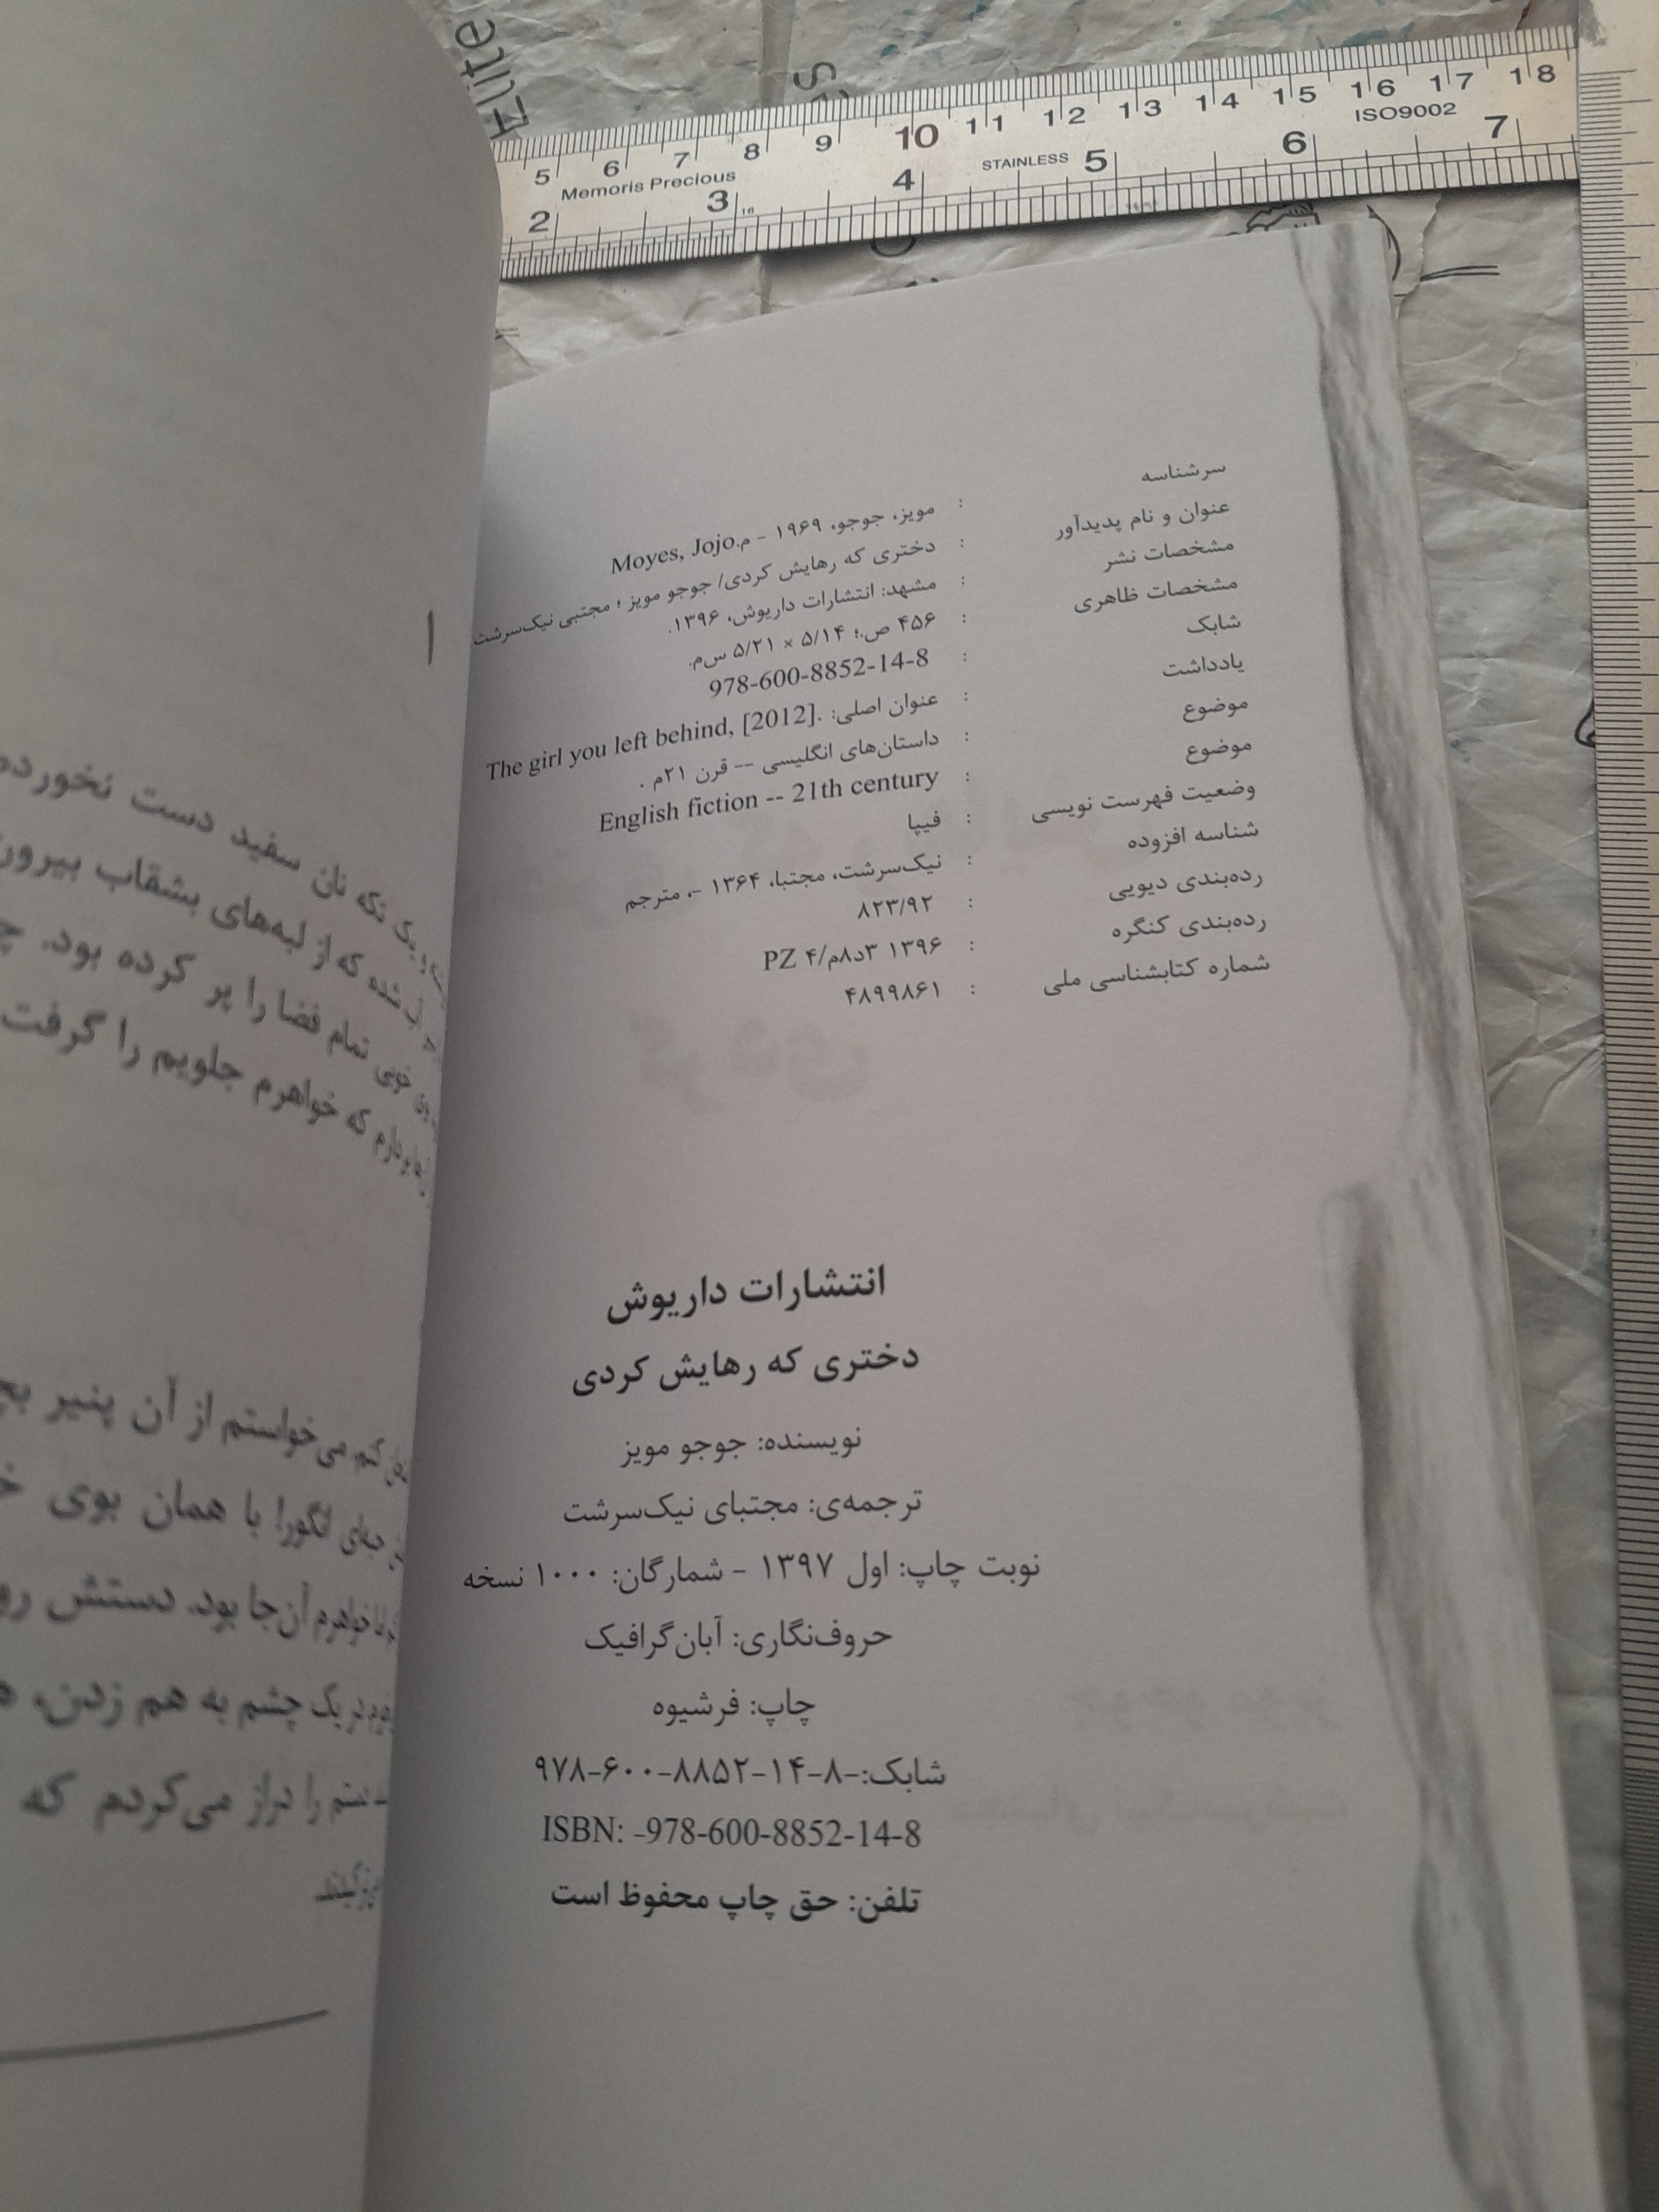 5 6 7 8 9 10 11 12 13 14 15 16 17 18
Memoris Precious
STAINLESS
ISO9002
2 3 4 5 6 7
سرشناسه : مویز، جوجو، ۱۹۶۹ - م.Moyes, Jojo
عنوان و نام پدیدآور : دختری که رهایش کردی/ جوجو مویز ؛ مجتبی نیک‌سرشت
مشخصات نشر : مشهد: انتشارات داریوش، ۱۳۹۶.
مشخصات ظاهری : ۴۵۶ ص.؛ ۵/۱۴ × ۵/۲۱ س‌م.
شابک : 978-600-8852-14-8
یادداشت : عنوان اصلی: .The girl you left behind, [2012]
موضوع : داستان‌های انگلیسی -- قرن ۲۱م .
موضوع : English fiction -- 21th century
وضعیت فهرست نویسی : فیپا
شناسه افزوده : نیک‌سرشت، مجتبا، ۱۳۶۴ -، مترجم
رده‌بندی دیویی : ۸۲۳/۹۲
رده‌بندی کنگره : ۱۳۹۶ ۳د۸م/۴ PZ
شماره کتابشناسی ملی : ۴۸۹۹۸۶۱
انتشارات داریوش
دختری که رهایش کردی
نویسنده: جوجو مویز
ترجمه‌ی: مجتبای نیک‌سرشت
نوبت چاپ: اول ۱۳۹۷ - شمارگان: ۱۰۰۰ نسخه
حروف‌نگاری: آبان‌گرافیک
چاپ: فرشیوه
شابک:-۸-۱۴-۸۸۵۲-۶۰۰-۹۷۸
ISBN: -978-600-8852-14-8
تلفن: حق چاپ محفوظ است
۱
یک تکه نان سفید دست نخورده
شده که از لبه‌های بشقاب بیرون
خوبی تمام فضا را پر کرده بود.
که خواهرم جلویم را گرفت
کنم. می‌خواستم از آن پنیر
انگور! با همان بوی
خواهرم آن‌جا بود. دستش
در یک چشم به هم زدن،
دستم را دراز می‌کردم که